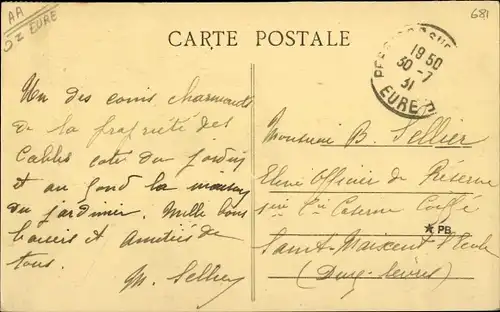 AA
EURE
681
CARTE POSTALE
19 50
30 - 7
31
EURE
Un des coins charmants
de la propriété des
Cables coté du jardin
et au fond la maison
du jardinier. Mille bons
baisers et Amitiés de
tous.
M. Sellier
Monsieur B. Sellier
Eleve Officier de Réserve
Cie Caserne Coiffé
★ PB
Saint-Maixent l'Ecole
(Deux-Sèvres)